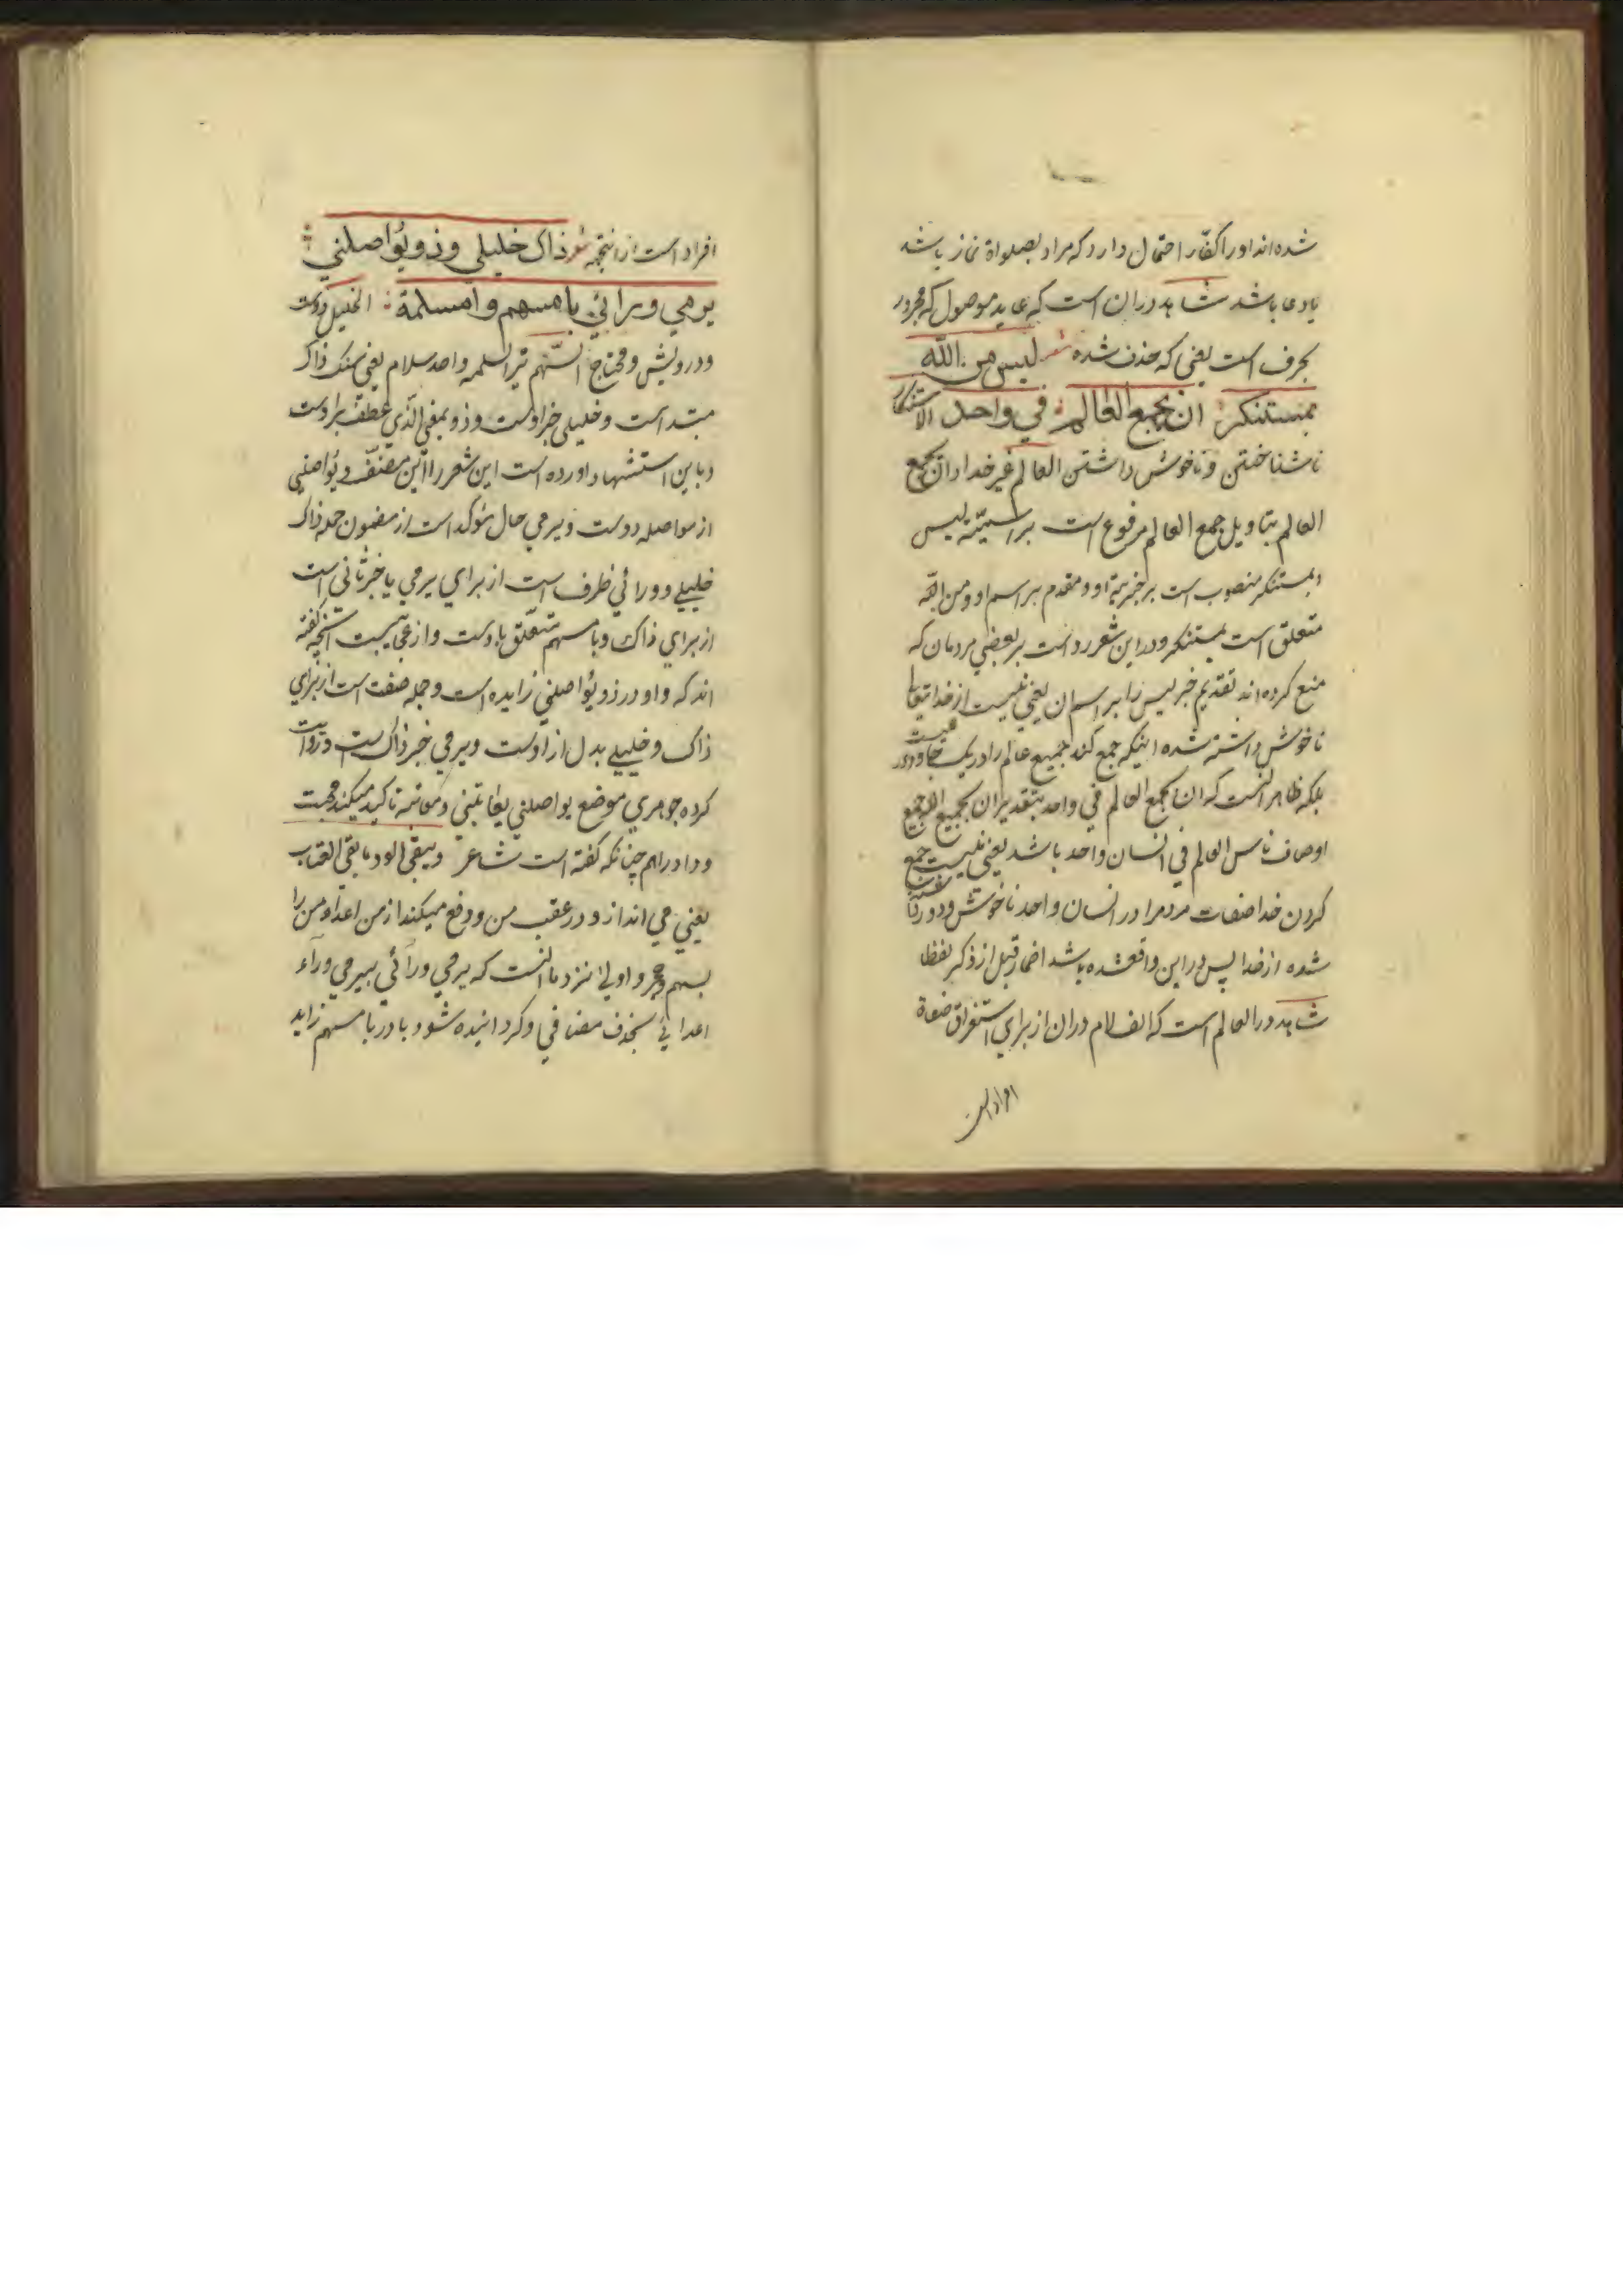 شده اند اورا کفّار احتمال دارد که مراد بصلواة نماز باشد
یادعا باشد شاهد دران است که عاید موصول که مجرور
بحرف است یعنی که حذف شده شعر لیس من الله
بمستنکر ان یجمع العالم في واحد الاستنکار
ناشناختن و ناخوش داشتن العالم غیر خدا و ان یجمع
العالم بتاویل جمع العالم مرفوع است براسمیّة لیس
وبمستنکر منصوب است بر خبریّة او و مقدم بر اسم او و من الله
متعلق است بمستنکر و در این شعر رد است بر بعضي مردمان که
منع کرده اند تقدیم خبر لیس را بر اسم ان یعني نیست از خدایتعالی
ناخوش داشته شده اینکه جمع کند جمیع عالم را در یک
بلکه ظاهر انست که ان یجمع العالم في واحد بتقدیر ان یجمع الله جمیع
اوصاف ناس العالم في انسان واحد باشد یعني نیست جمع
کردن خدا صفات مردمرا در انسان واحد ناخوش و دور
شده از خدا پس در این واقعشده باشد اضمار قبل از ذکر لفظا
شاهد در العالم است که الف لام دران از برای استغراق صفاة
افراد است
افراد است از انتجه شعر ذاک خلیلي وذو یُواصلني
یرمي ورائي بامسهم وامسلمة الخلیل دوست
ودرویش و محتاج السّهم تیر السلمه واحد سلام یعني سنک ذاک
مبتداست و خلیلي خبر اوست و ذو بمعني الّذي عطف بر اوست
و باین استشهاد اورده است این شعر را ابن مصنّف و یُواصلني
از مواصله دوست و یرمي حال مؤکد است از مضمون جمله ذاک
خلیلے و ورائي ظرف است از برای یرمي یا خبر ثانی است
از برای ذاک و بامسهم متعلّق باوست و از عجایبست انچه کفته
اند که واو در ذو یُواصلني زایده است و جمله صفت است از برای
ذاک و خلیلے بدل از اوست و یرمي خبر ذاک است و روایت
کرده جوهري موضع یواصلني یعاتبني و معاتبه تاکید میکند محبت
و وداد را هم چنانکه کفته است شاعر ویبقی الود ما بقی العتاب
یعني مي اندازد در عقب من و دفع میکند از من اعداء من را
بسهم و حجر و اولی نزد ما انست که یرمي ورائي بیرمي وراء
اعدائي بحذف مضاف و کردانیده شود با در بامسهم زاید